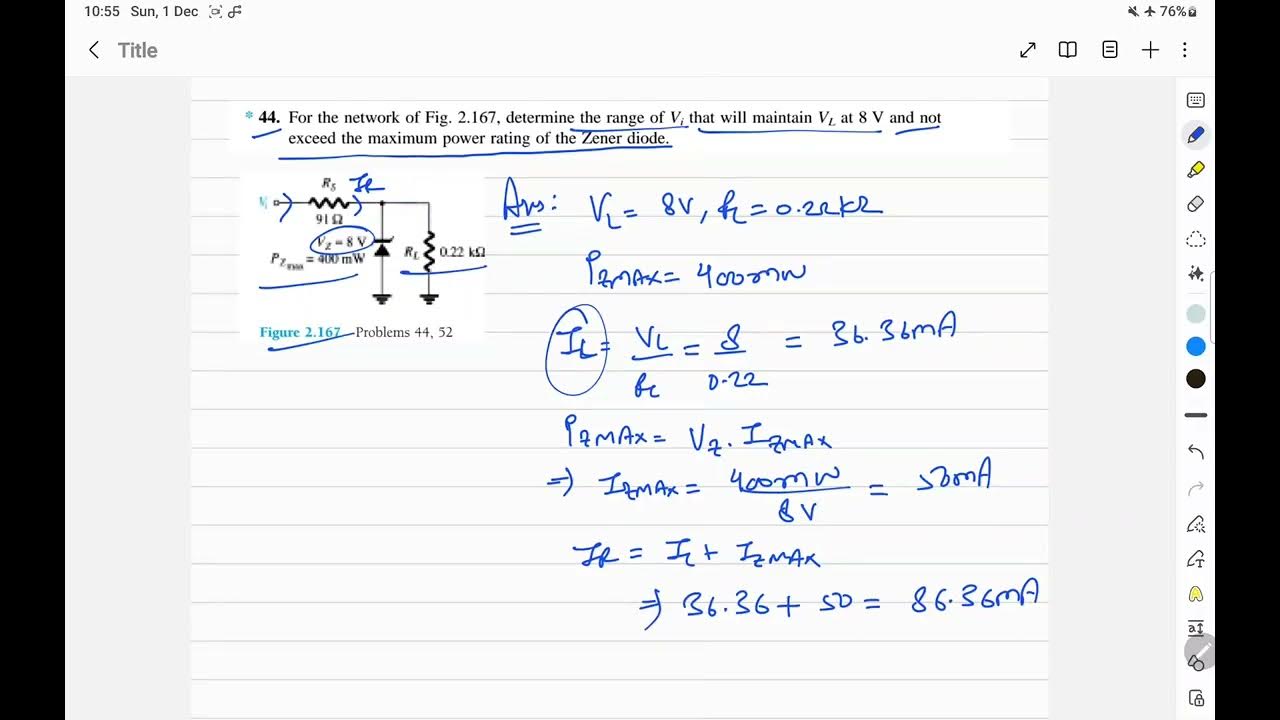 10:55 Sun, 1 Dec
76%
Title
* 44. For the network of Fig. 2.167, determine the range of Vi that will maintain VL at 8 V and not
exceed the maximum power rating of the Zener diode.
RS IR
Vi
91 Ω
VZ = 8 V
PZmax = 400 mW
RL 0.22 kΩ
Figure 2.167 Problems 44, 52
Ans: VL = 8V, RL = 0.22kΩ
PZMAX = 400mW
IL = VL/RL = 8/0.22 = 36.36mA
PZMAX = VZ . IZMAX
⇒ IZMAX = 400mW/8V = 50mA
IR = IL + IZMAX
⇒ 36.36 + 50 = 86.36mA